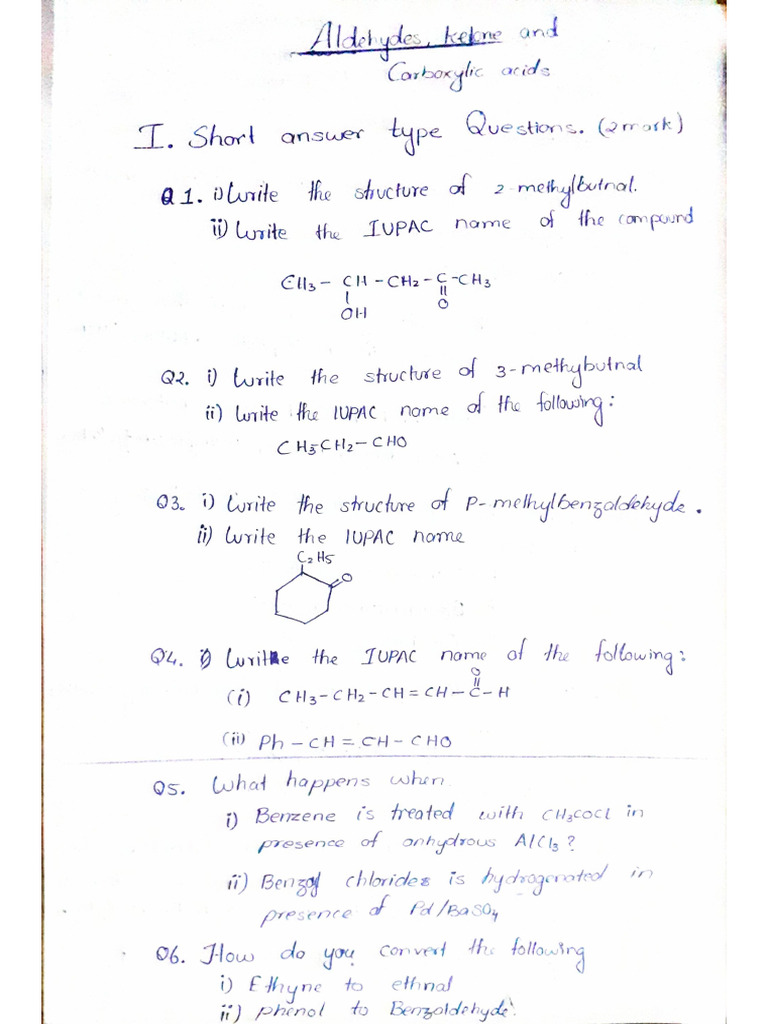 Aldehydes, ketone and
Carboxylic acids
I. Short answer type Questions. (2 mark)
Q1. i) Write the structure of 2-methylbutnal.
ii) Write the IUPAC name of the compound
CH3 – CH – CH2 – C – CH3
OH O
Q2. i) Write the structure of 3-methybutnal
ii) Write the IUPAC name of the following:
CH3CH2 – CHO
Q3. i) Write the structure of P-methylbenzaldehyde.
ii) Write the IUPAC name
C2H5
O
Q4. i) Write the IUPAC name of the following:
O
(i) CH3 – CH2 – CH = CH – C – H
(ii) Ph – CH = CH – CHO
Q5. What happens when
i) Benzene is treated with CH3COCl in
presence of anhydrous AlCl3?
ii) Benzoyl chlorides is hydrogenated in
presence of Pd/BaSO4
Q6. How do you convert the following
i) Ethyne to ethnal
ii) phenol to Benzoldehyde.